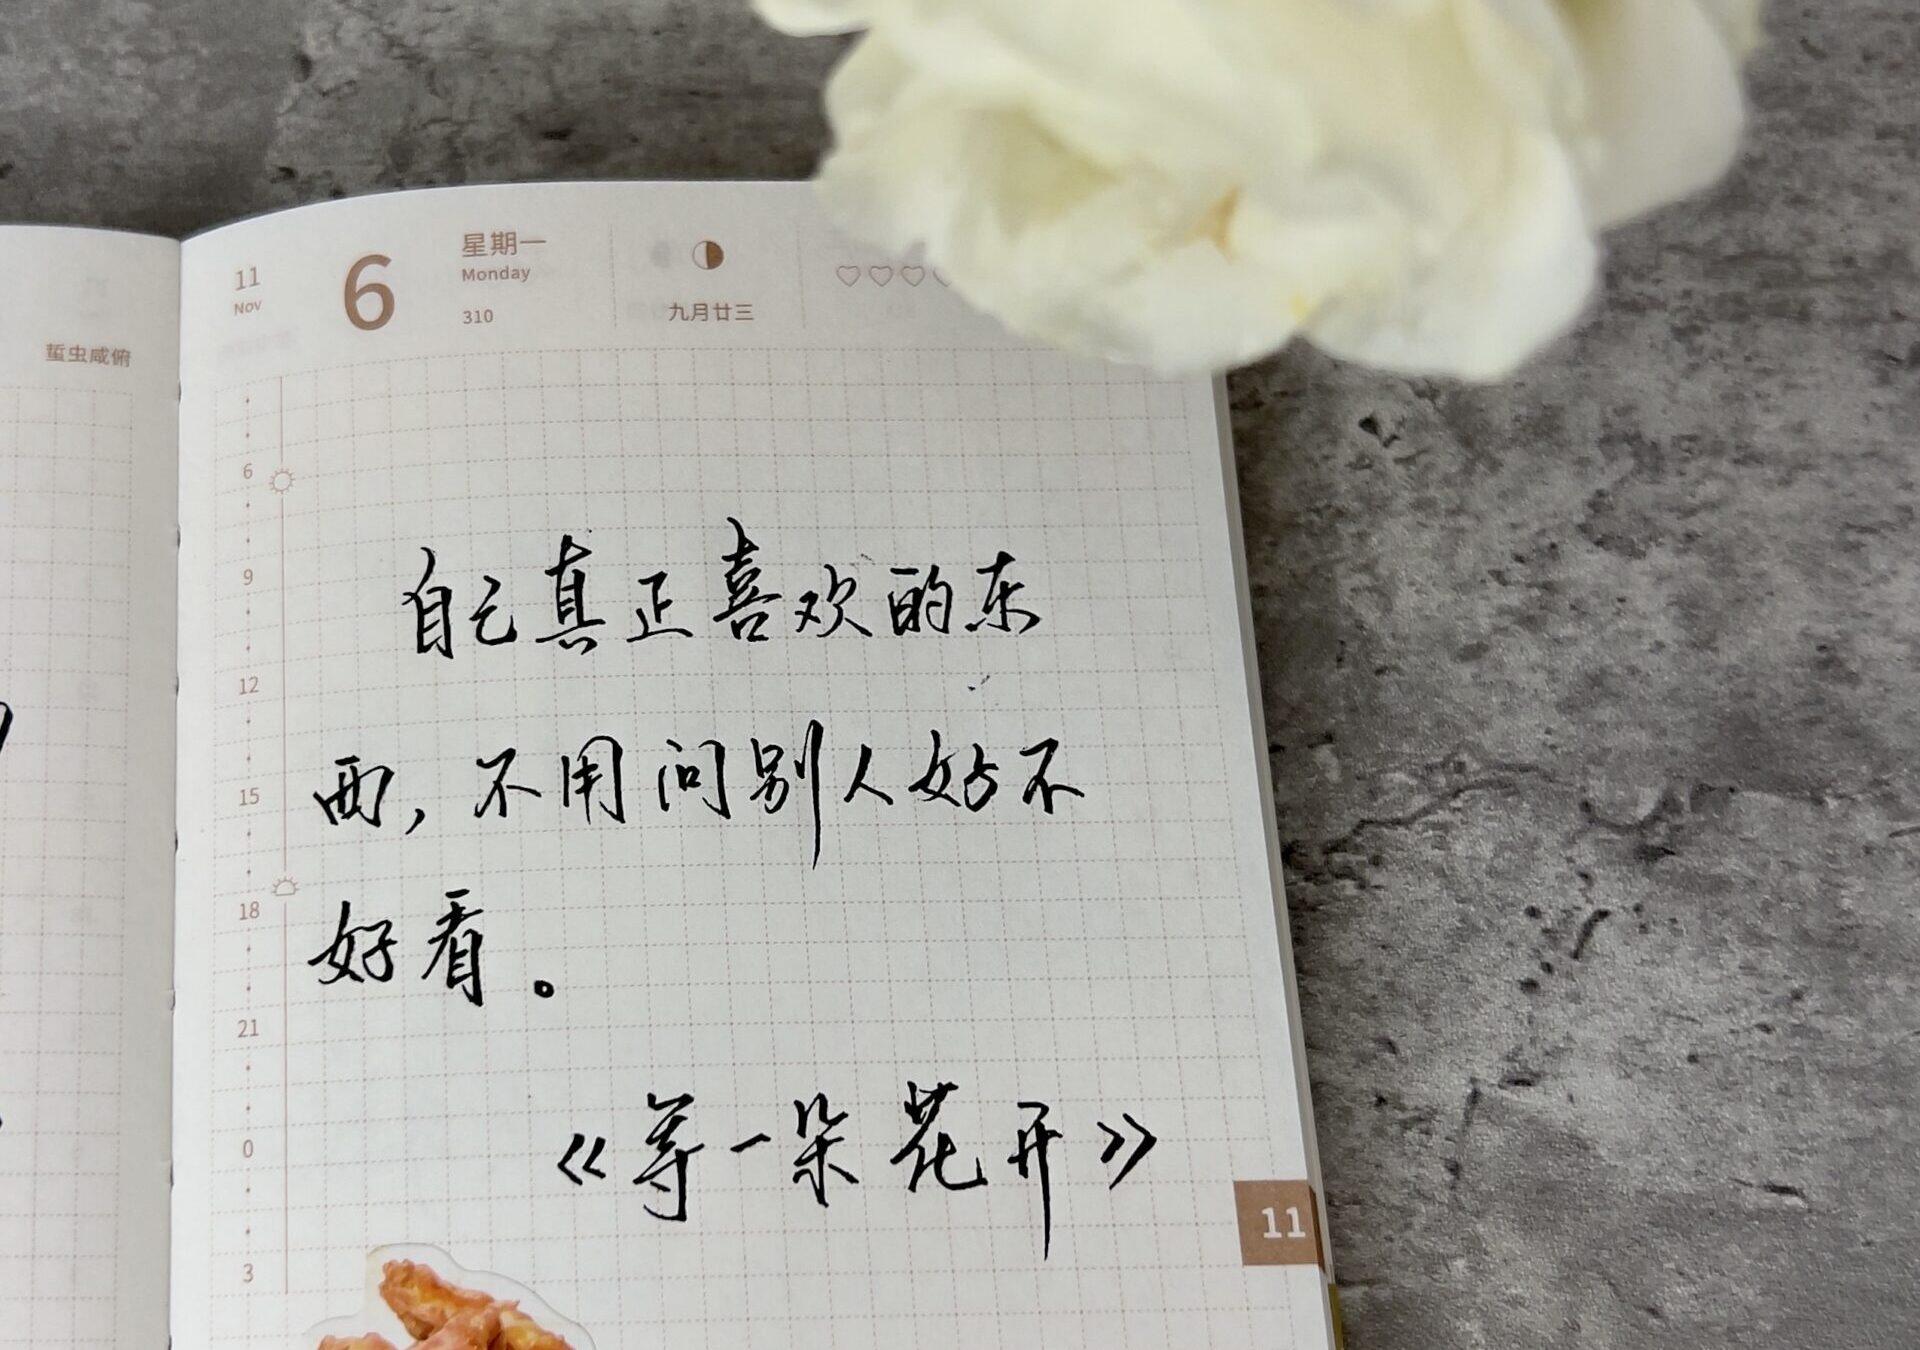 蜇虫咸俯
11
Nov
6
星期一
Monday
310
九月廿三
6
9
12
15
18
21
0
3
自己真正喜欢的东
西，不用问别人好不
好看。
《等一朵花开》
11